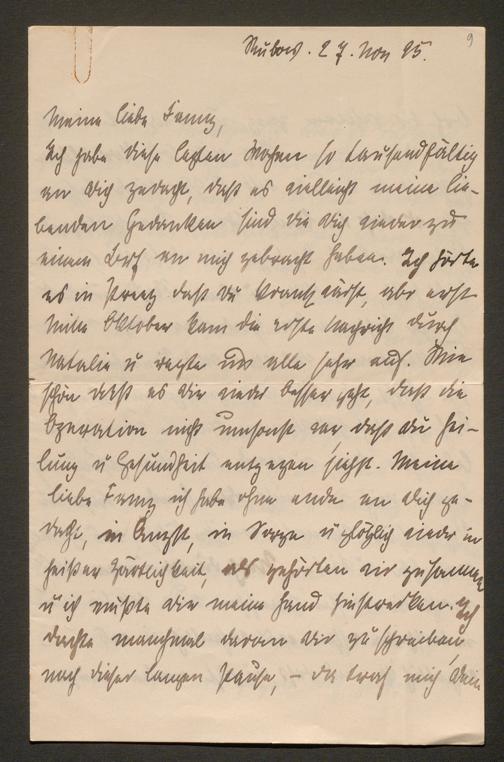 9
27. Nov 95.
Meine liebe Fanny,
Ich habe diese letzten Wochen so tausendfältig
an Dich gedacht, daß es vielleicht meine lie-
benden Gedanken sind die Dich wieder zu
einem Brief an mich gebracht haben. Ich hörte
es in Preetz daß Du krank wärst, aber erst
Mitte Oktober kam die erste Nachricht durch
Natalie u regte uns alle sehr auf. Wie
schön daß es Dir wieder besser geht, daß die
Operation nicht umsonst war daß Du Hei-
lung u Gesundheit entgegen siehst. Meine
liebe Fanny ich habe ohne Ende an Dich ge-
dacht, in Angst, in Sorge u plötzlich wieder in
heißer Zärtlichkeit, als gehörten wir zusammen
u ich müßte Dir meine Hand hinstrecken. Ich
dachte manchmal daran Dir zu schreiben,
nach dieser langen Pause, – da traf mich Dein